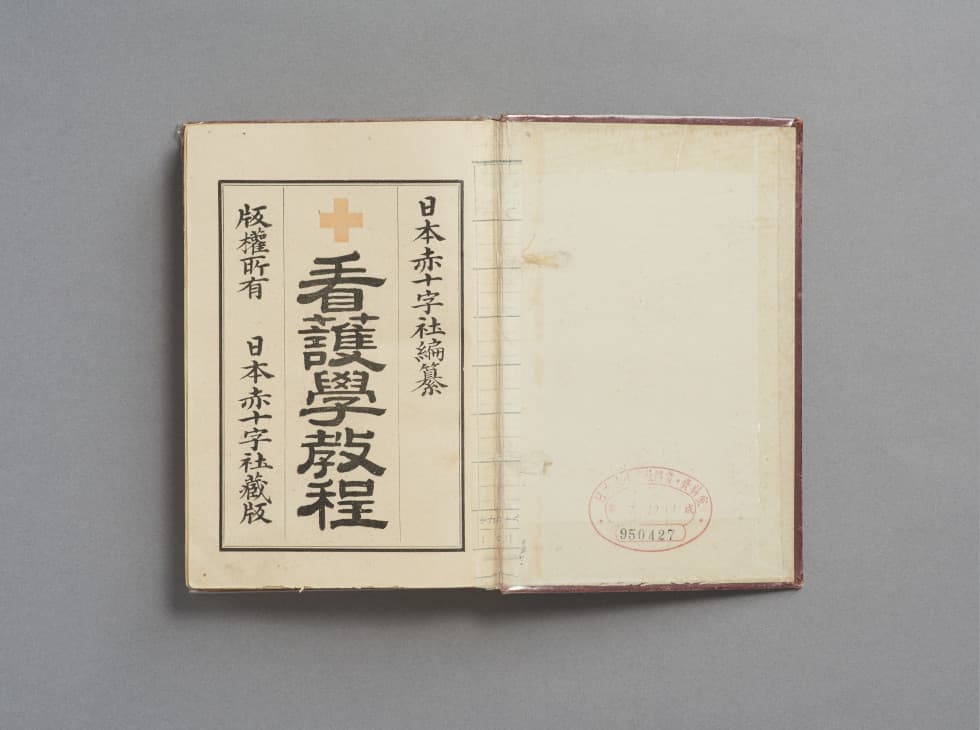 日本赤十字社編纂
看護學教程
版權所有　日本赤十字社藏版
950427